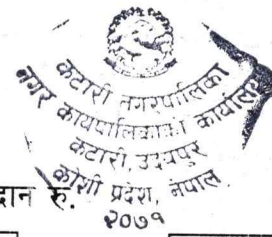 कटारी नगरपालिका
नगर कार्यपालिकाको कार्यालय
कटारी, उदयपुर
कोशी प्रदेश, नेपाल
२०७१
दान रु.